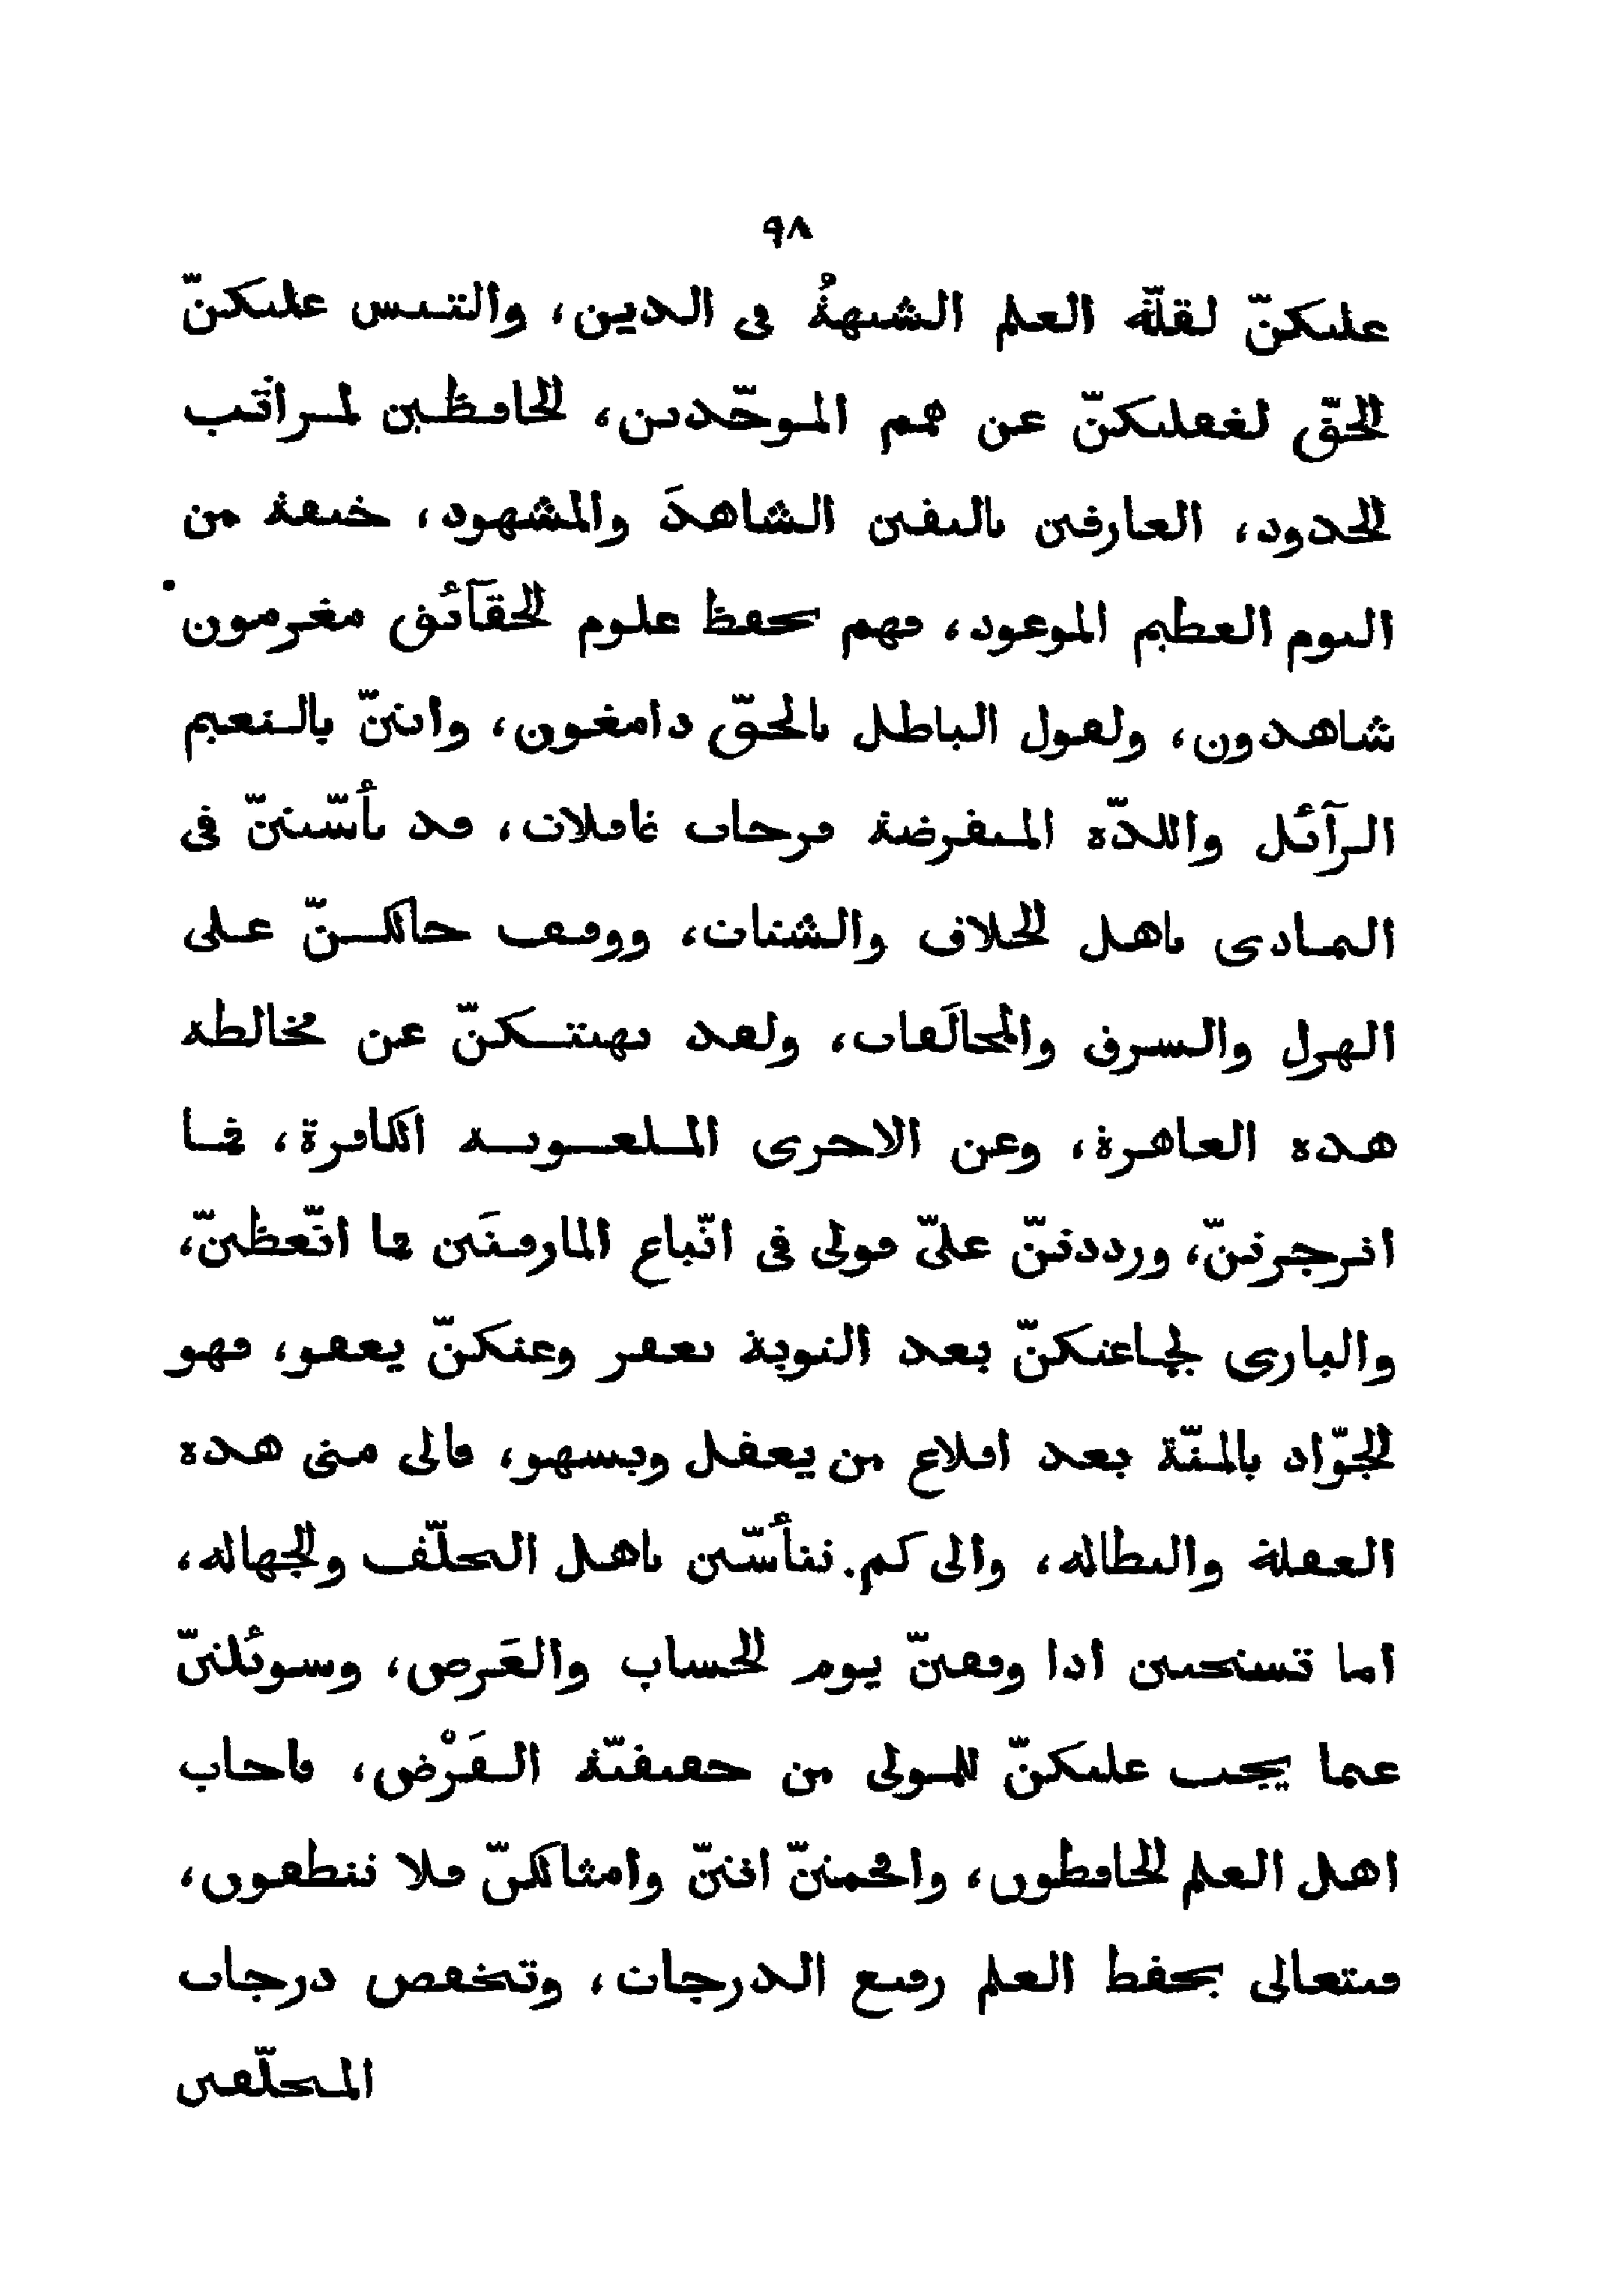 ٩٨
عليكنّ لقلّة العلم الشبهةُ في الدين، والتبس عليكنّ
الحقّ لغفلتكنّ عن همم الموحّدين، الحافظين لمراتب
الحدود، العارفين باليقين الشاهدَ والمشهود، خيفة من
اليوم العظيم الموعود، فهم بحفظ علوم الحقآئق مغرمون
شاهدون، ولقول الباطل بالحقّ دامغون، وانتنّ بالنعيم
الزآئل واللذّة المنقرضة فرحات غافلات، قد تأسّيتنّ في
التمادى باهل الخلاف والشتات، ووقف حالكنّ على
الهزل والسرف والمخالَفات، ولقد نهيتكنّ عن مخالطة
هذه العاهرة، وعن الاخرى الملعونة الكافرة، فما
انزجرتنّ، ورددتنّ علىّ قولى في اتّباع المارقتَين فما اتّعظتنّ،
والبارى لجماعتكنّ بعد التوبة يغفر وعنكنّ يعفو، فهو
الجوّاد بالمنّة بعد اقلاع من يغفل ويسهو، فالى متى هذه
الغفلة والبطالة، والى كم. تتأسّين باهل التخلّف والجهالة،
اما تستحيين اذا وقفتنّ يوم الحساب والعَرض، وسوئلتنّ
عما يجب عليكنّ للمولى من حقيقيّة الفَرْض، فاجاب
اهل العلم الحافظون، وافحمتنّ انتنّ وامثالكنّ فلا تنطقون،
فيتعالى بحفظ العلم رفيع الدرجات، وتنخفض درجات
المتخلّفين